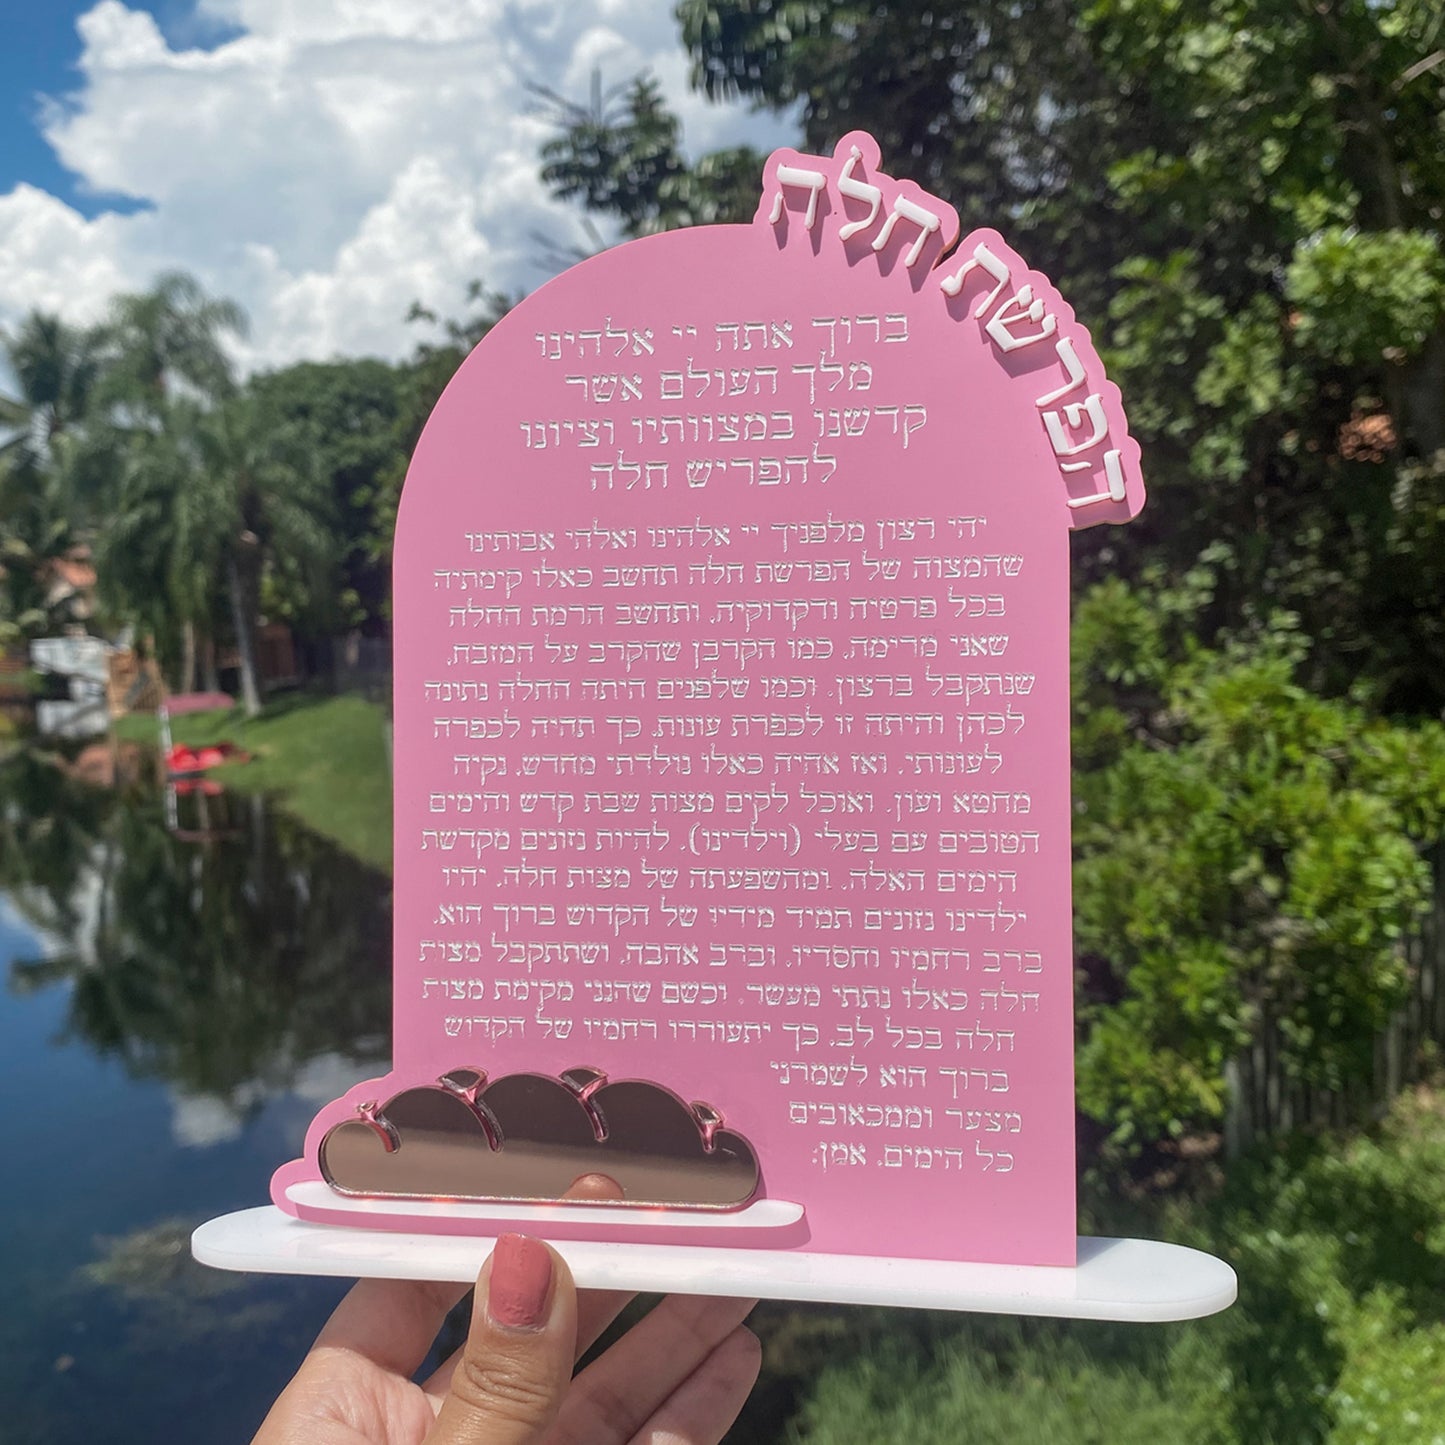 הפרשת חלה
ברוך אתה יי אלהינו
מלך העולם אשר
קדשנו במצוותיו וציונו
להפריש חלה
יהי רצון מלפניך יי אלהינו ואלהי אבותינו
שהמצוה של הפרשת חלה תחשב כאלו קימתיה
בכל פרטיה ודקדוקיה. ותחשב הרמת החלה
שאני מרימה. כמו הקרבן שהקרב על המזבח.
שנתקבל ברצון. וכמו שלפנים היתה החלה נתונה
לכהן והיתה זו לכפרת עונות. כך תהיה לכפרה
לעונותי. ואז אהיה כאלו נולדתי מחדש. נקיה
מחטא ועון. ואוכל לקים מצות שבת קדש והימים
הטובים עם בעלי (וילדינו). להיות נזונים מקדשת
הימים האלה. ומהשפעתה של מצות חלה. יהיו
ילדינו נזונים תמיד מידיו של הקדוש ברוך הוא.
ברב רחמיו וחסדיו. וברב אהבה. ושתתקבל מצות
חלה כאלו נתתי מעשר. וכשם שהנני מקימת מצות
חלה בכל לב. כך יתעוררו רחמיו של הקדוש
ברוך הוא לשמרני
מצער וממכאובים
כל הימים. אמן: